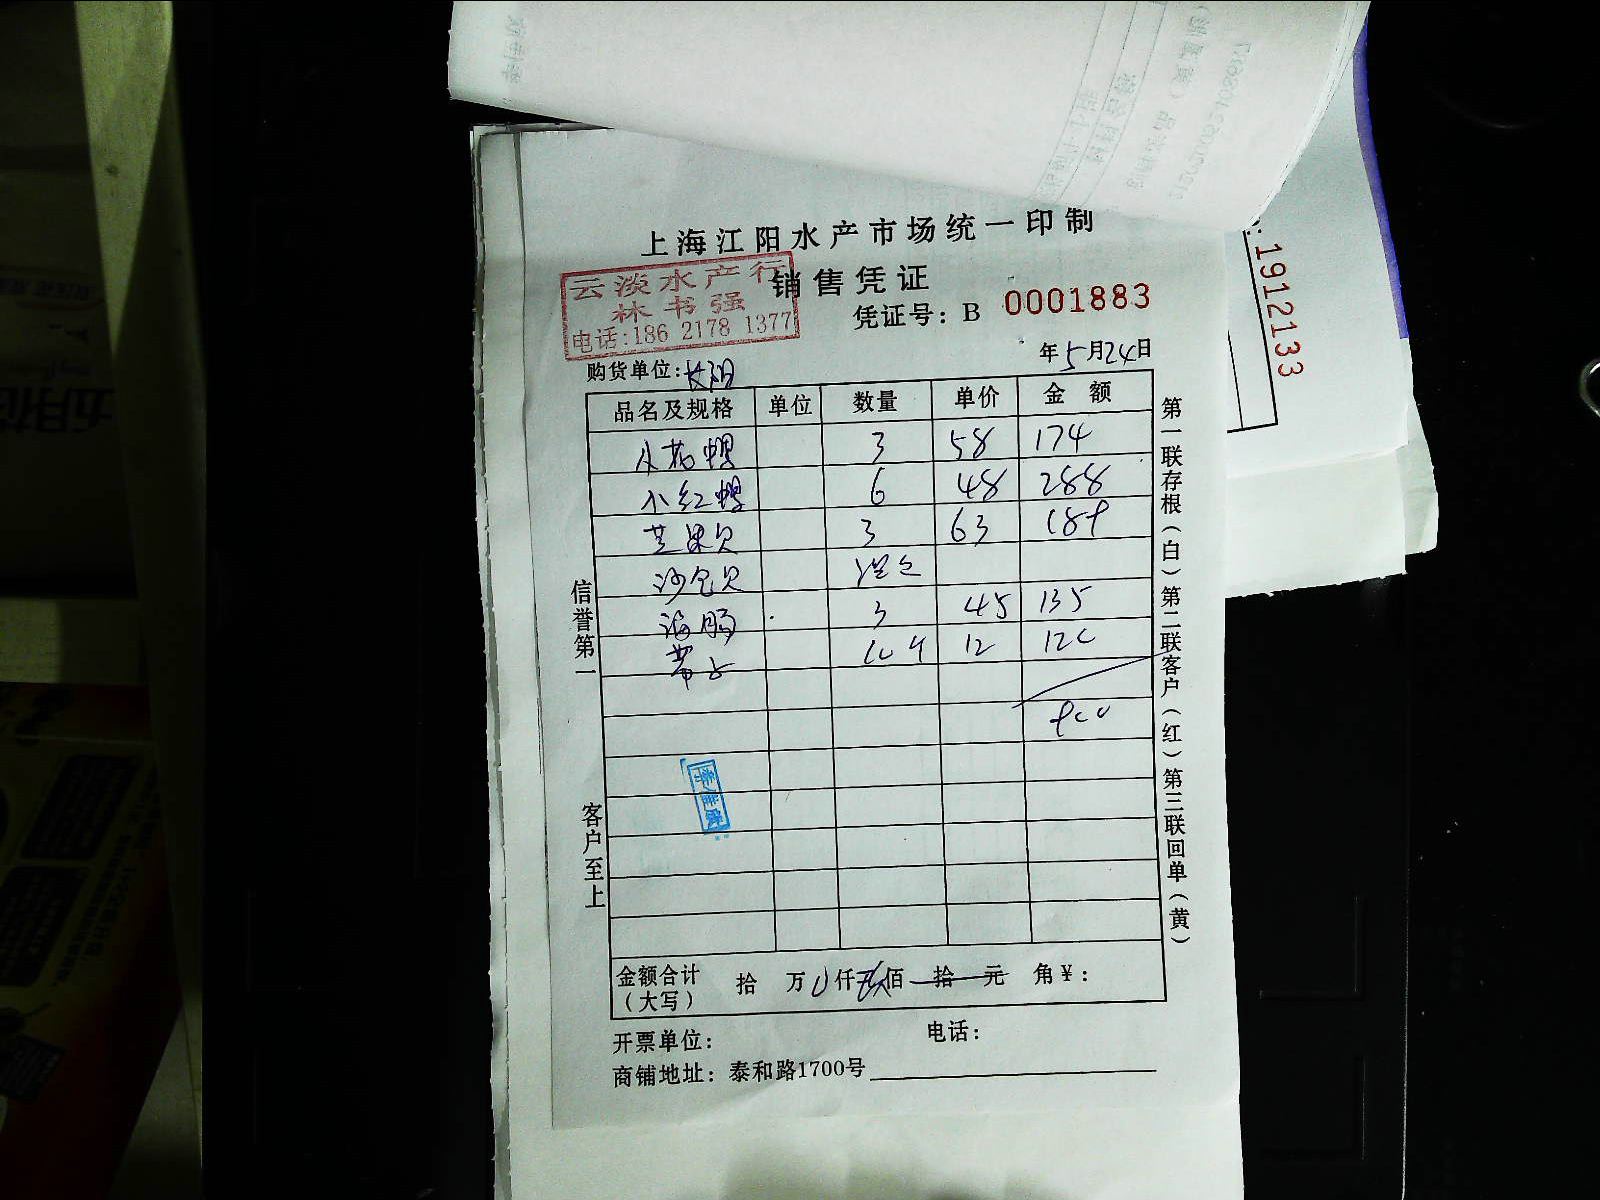 上海江阳水产市场统一印制
销售凭证
云淡水产行
林书强
电话:186 2178 1377
凭证号: B 0001883
年5月24日
购货单位:长阳
品名及规格 单位 数量 单价 金额
3 58 174
小红螺 6 48 288
芒果贝 3 63 189
沙包贝
海肠 3 45 135
带子 10斤 12 120
900
金额合计(大写) 拾 万 仟 玖 佰 拾 元 角 ¥:
开票单位: 电话:
商铺地址: 泰和路1700号
信誉第一
客户至上
第一联存根(白) 第二联客户(红) 第三联回单(黄)
1912133